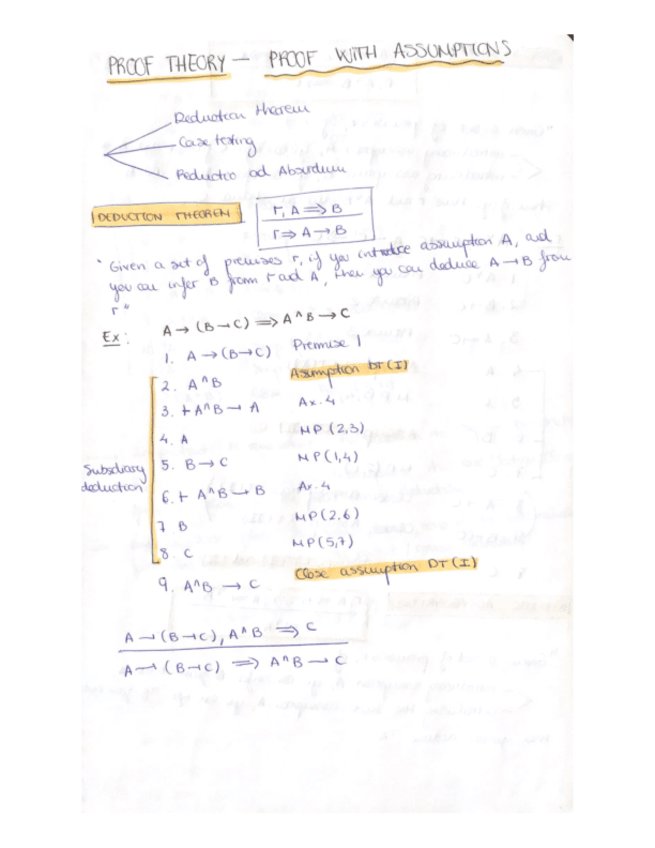 PROOF THEORY — PROOF WITH ASSUMPTIONS
Deduction theorem
Case testing
Reductio ad Absurdum
DEDUCTION THEOREM
Γ, A ⟹ B
Γ ⟹ A → B
"Given a set of premises Γ, if you introduce assumption A, and
you can infer B from Γ and A, then you can deduce A → B from
Γ"
Ex: A → (B → C) ⟹ A ^ B → C
1. A → (B → C) Premise 1
2. A ^ B Assumption DT (I)
3. ⊢ A ^ B → A Ax. 4
4. A MP (2,3)
5. B → C MP (1,4)
6. ⊢ A ^ B → B Ax. 4
7 B MP (2,6)
8. C MP (5,7)
Subsidiary
deduction
9. A ^ B → C Close assumption DT (I)
A → (B → C), A ^ B ⟹ C
A → (B → C) ⟹ A ^ B → C